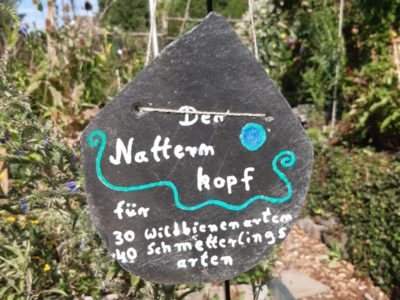 Der
Natterm
kopf
für
30 Wildbienenarten
40 Schmetterlings
arten